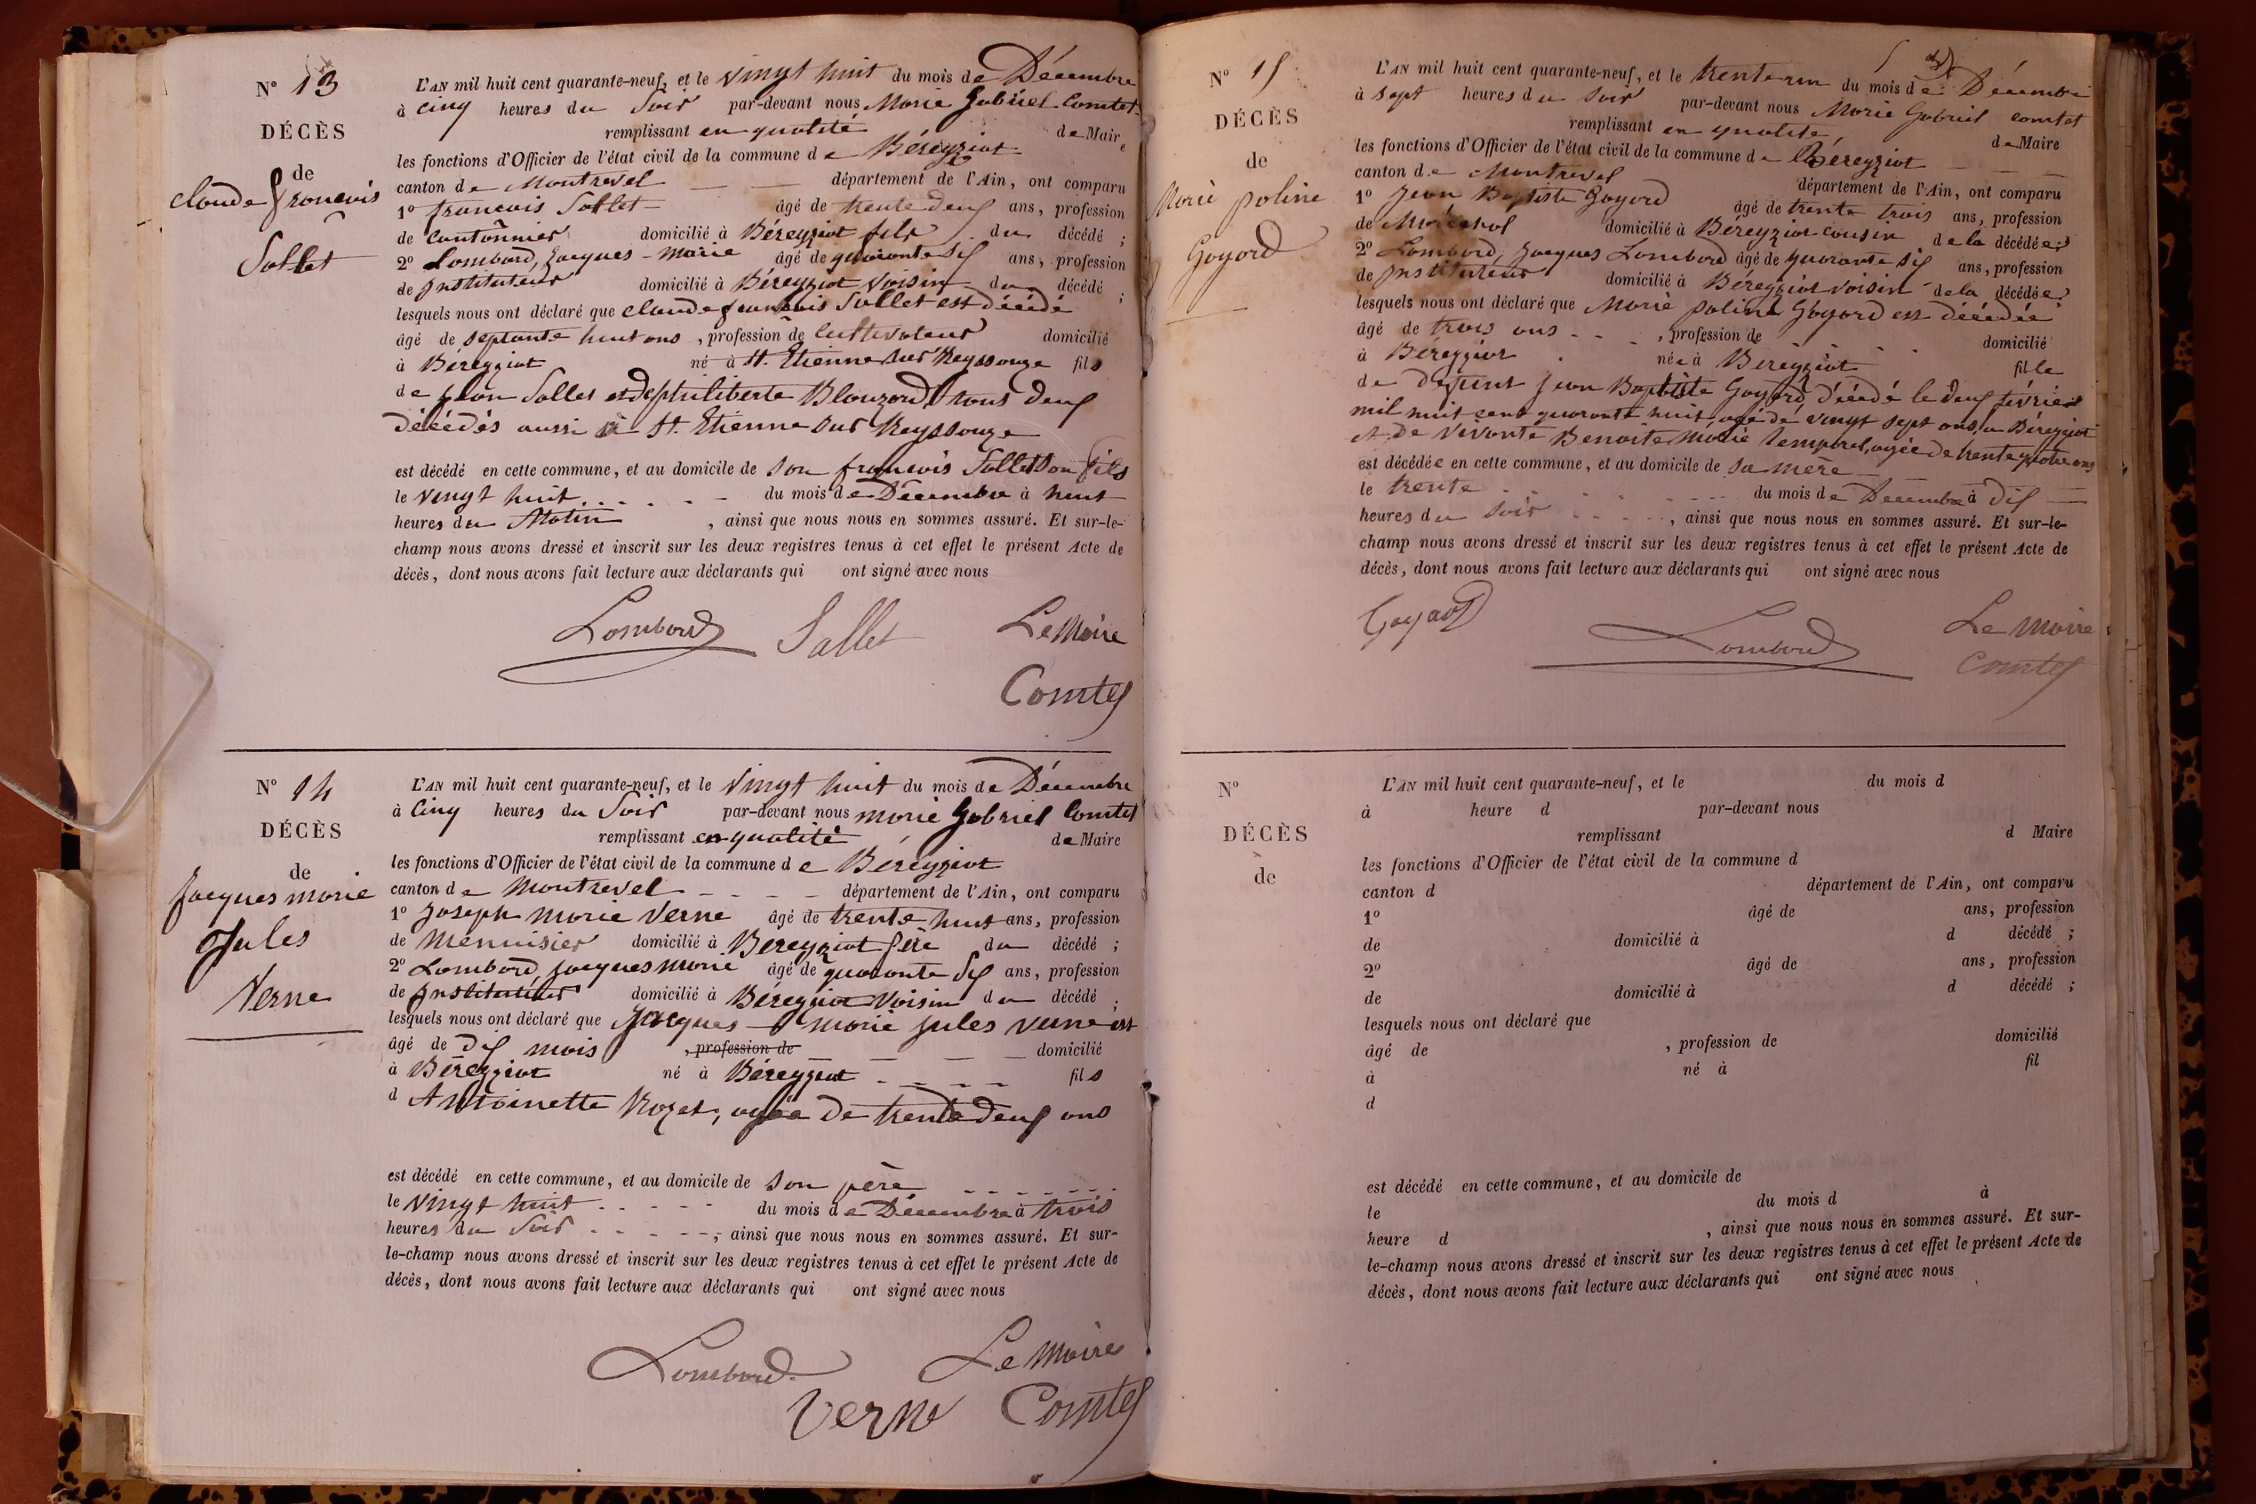 N° 13
DÉCÈS
de
Claude francois
Sallet
L'AN mil huit cent quarante-neuf, et le vingt huit du mois de Décembre
à cinq heures du Soir par-devant nous Marie Gabriel Comtet
remplissant en qualité de Maire
les fonctions d'Officier de l'état civil de la commune de Béreyziat
canton de Montrevel département de l'Ain, ont comparu
1° francois Sallet âgé de trente deux ans, profession
de cantonnier domicilié à Béreyziat fils du décédé ;
2° Lombard, Jacques-marie âgé de quarante six ans, profession
de Instituteur domicilié à Béreyziat voisin du décédé ;
lesquels nous ont déclaré que claude francois Sallet est décédé
âgé de septante huit ans, profession de cultivateur domicilié
à Béreyziat né à St. Etienne sur Reyssouze fils
de Sallet et de philiberte Blouzard, tous deux
décédés aussi à St. Etienne sur Reyssouze
est décédé en cette commune, et au domicile de son francois Sallet son fils
le vingt huit du mois de Décembre à huit
heures du Matin, ainsi que nous nous en sommes assuré. Et sur-le-
champ nous avons dressé et inscrit sur les deux registres tenus à cet effet le présent Acte de
décès, dont nous avons fait lecture aux déclarants qui ont signé avec nous
Lombard Sallet Le Maire
Comtet
N° 14
DÉCÈS
de
Jacques marie
Jules
Verne
L'AN mil huit cent quarante-neuf, et le vingt huit du mois de Décembre
à cinq heures du Soir par-devant nous marie Gabriel Comtet
remplissant en qualité de Maire
les fonctions d'Officier de l'état civil de la commune de Béreyziat
canton de Montrevel département de l'Ain, ont comparu
1° Joseph marie Verne âgé de trente huit ans, profession
de menuisier domicilié à Béreyziat père du décédé ;
2° Lombard, Jacques marie âgé de quarante six ans, profession
de Instituteur domicilié à Béreyziat voisin du décédé ;
lesquels nous ont déclaré que Jacques marie jules verne est
âgé de dix mois, profession de domicilié
à Béreyziat né à Béreyziat fils
d Antoinette Rozet, agée de trente deux ans
est décédé en cette commune, et au domicile de son père
le vingt huit du mois de Décembre à trois
heures du Soir, ainsi que nous nous en sommes assuré. Et sur-
le-champ nous avons dressé et inscrit sur les deux registres tenus à cet effet le présent Acte de
décès, dont nous avons fait lecture aux déclarants qui ont signé avec nous
Lombard Le Maire
Verne Comtet
N° 15
DÉCÈS
de
Marie poline
Goyard
L'AN mil huit cent quarante-neuf, et le trente un du mois de Décembre
à sept heures du soir par-devant nous Marie Gabriel comtet
remplissant en qualité de Maire
les fonctions d'Officier de l'état civil de la commune de Béreyziat
canton de Montrevel département de l'Ain, ont comparu
1° Jean Baptiste Goyard âgé de trente trois ans, profession
de Maréchal domicilié à Béreyziat cousin de la décédée ;
2° Lombard, Jacques Lombard âgé de quarante six ans, profession
de Instituteur domicilié à Béreyziat voisin de la décédée ;
lesquels nous ont déclaré que Marie poline Goyard est décédée
âgé de trois ans, profession de domicilié
à Béreyziat née à Béreyziat fille
de défunt Jean Baptiste Goyard décédé le deux février
mil huit cent quarante huit, agé de vingt sept ans, a Béreyziat
et de vivante Benoite Marie Temporel, agée de trente quatre ans
est décédée en cette commune, et au domicile de sa mère
le trente du mois de Décembre à dix
heures du soir, ainsi que nous nous en sommes assuré. Et sur-le-
champ nous avons dressé et inscrit sur les deux registres tenus à cet effet le présent Acte de
décès, dont nous avons fait lecture aux déclarants qui ont signé avec nous
Goyard Lombard Le Maire
Comtet
N°
DÉCÈS
de
L'AN mil huit cent quarante-neuf, et le du mois d
à heure d par-devant nous
remplissant d Maire
les fonctions d'Officier de l'état civil de la commune d
canton d département de l'Ain, ont comparu
1° âgé de ans, profession
de domicilié à d décédé ;
2° âgé de ans, profession
de domicilié à d décédé ;
lesquels nous ont déclaré que
âgé de , profession de domicilié
à né à fil
d
est décédé en cette commune, et au domicile de
le du mois d à
heure d , ainsi que nous nous en sommes assuré. Et sur-
le-champ nous avons dressé et inscrit sur les deux registres tenus à cet effet le présent Acte de
décès, dont nous avons fait lecture aux déclarants qui ont signé avec nous